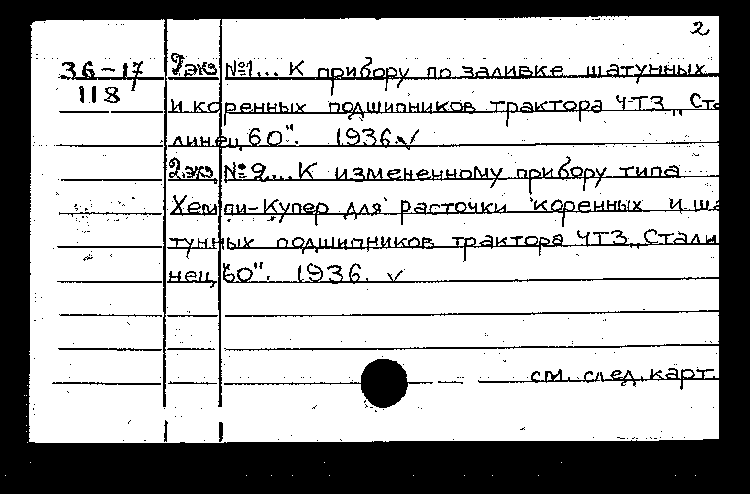 2
36-17 2экз №1... К прибору по заливке шатунных
118
и коренных подшипников трактора ЧТЗ „Ста
линец 60". 1936 ✓
2экз №2... К измененному прибору типа
Хемпи-Купер для расточки коренных и ша
тунных подшипников трактора ЧТЗ „Стали
нец "60". 1936. ✓
см. след. карт.